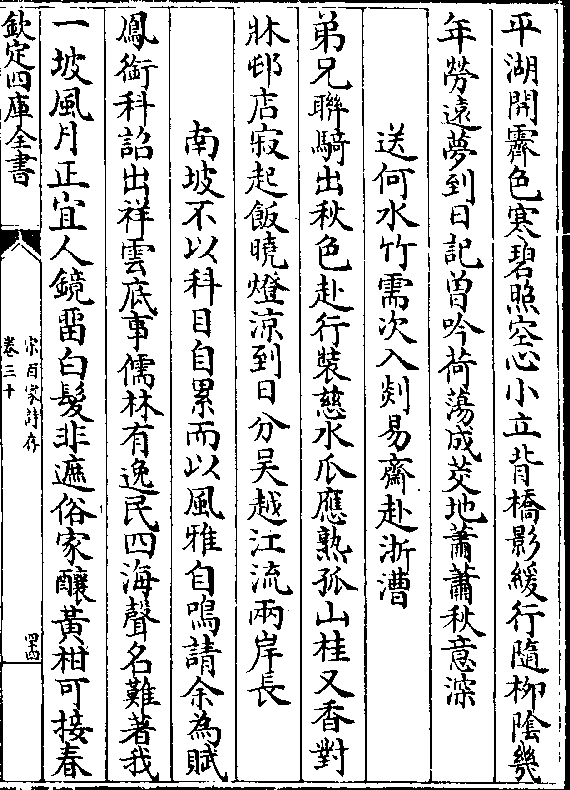 平湖開霽色寒碧照空心小立背橋影緩行隨柳陰幾
年勞遠夢到日記曽吟荷蕩成茭地蕭蕭秋意深
送何水竹需次入剡易齋赴浙漕
弟兄聯騎出秋色赴行裝慈水瓜應熟孤山桂又香對
牀邨店寂起飯曉燈涼到日分吳越江流兩岸長
南坡不以科目自累而以風雅自鳴請余為賦
鳳銜科詔出祥雲底事儒林有逸民四海聲名難著我
一坡風月正宜人鏡留白髮非遮俗家釀黃柑可接春
欽定四庫全書
宋百家詩存
卷三十
四